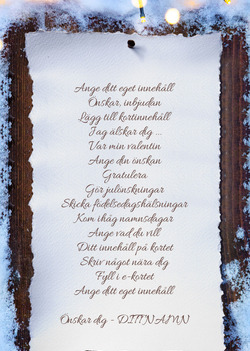 Ange ditt eget innehåll
Önskar, inbjudan
Lägg till kortinnehåll
Jag älskar dig ...
Var min valentin
Ange din önskan
Gratulera
Gör julönskningar
Skicka födelsedagshälsningar
Kom ihåg namnsdagar
Ange vad du vill
Ditt innehåll på kortet
Skriv något nära dig
Fyll i e-kortet
Ange ditt eget innehåll
Önskar dig - DITT NAMN